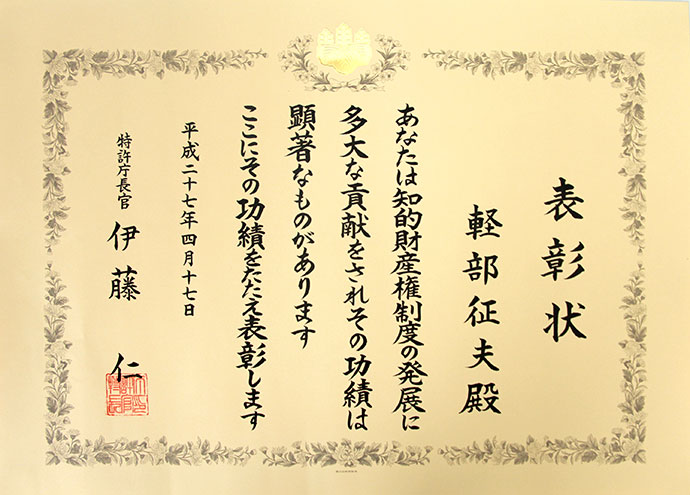 表彰状
軽部征夫殿
あなたは知的財産権制度の発展に
多大な貢献をされその功績は
顕著なものがあります
ここにその功績をたたえ表彰します
平成二十七年四月十七日
特許庁長官 伊藤 仁